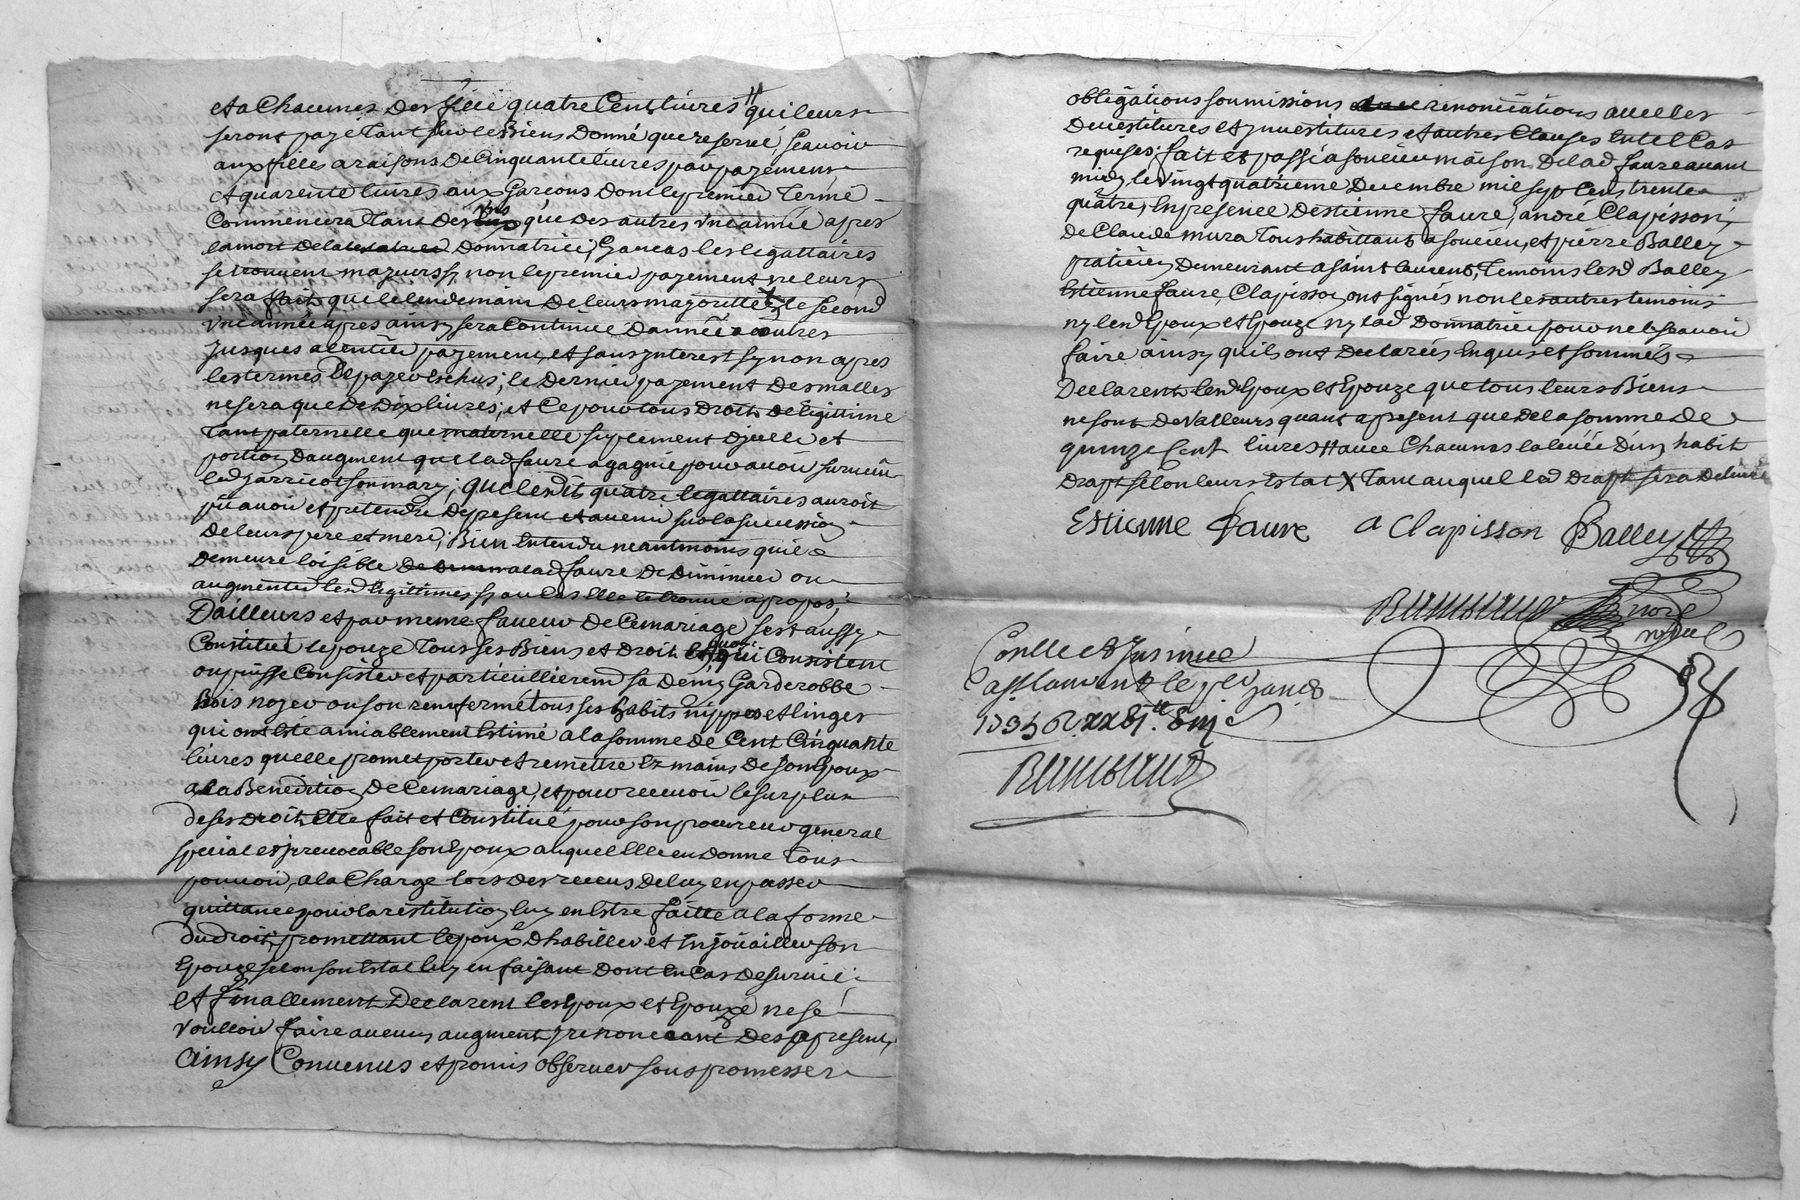 et a Chacunes des filie quatre Cent livres qui leurs
seront payé tant sur les Biens Donné que reservé, scavoir
aux filles a raisons de Cinquante livres par payement
et quarente livres aux Garcons dont le premier terme
Commencera tant des uns que des autres une année apres
la mort de la testatrice Donnatrice, sy en cas les legattaires
se trouvent mayeurs sy non le premier payement ne leurs
sera fait que le lendemain de leurs majorité et le second
une année apres ainsy sera Continue Dannée a autres
jusques a lentier payement, et sans interest synon apres
les termes de payer eschus; le Dernier payement des malles
ne sera que de Dix livres; et Ce pour tous Droits de legittime
tant paternelle que maternelle suplement Dicelle et
portion daugment que lad faure a gagnié pour avoir survecu
led jarricot son mary; que lesdits quatre legattaires auroit
pu avoir et pretendre de present et avenir sur la succession
de leurs pere et mere; Bien Entendu neantmoins quil
demeure loisible a lad faure de Diminuer ou
augmenter lesd legittimes sy au cas Elle le trouve apropos;
Dailleurs et par meme faveur de Ce mariage sest aussy
Constitué lepouze tous ses Biens et Droit En quoy qui Consistent
ou puisse Consister et particuillierem sa Demy Garderobbe
Bois noyer ou son renfermé tous ses habits nippes et linges
qui ont Esté amiablement Estimé a la somme de Cent Cinquante
livres quelle promet porter et remettre Ez mains de son Epoux
a la Benediction de Ce mariage, et pour recevoir le surplus
de ses Droit, Elle fait et Constitué pour son procureur general
special et irrevocable son Epoux auquel Elle en donne tous
pouvoir, a la Charge lors des receus de luy en passer
quittance pour la restitution luy en Estre faitte a la forme
du droit; promettant lepoux dhabiller et Enjoüailler son
Epouze selon son Estat luy en faisant Dont En Cas de survie;
et finallement Declarent les Epoux et Epouze ne se
voulloir faire aucun augment y renoncant Des apresent,
ainsy Convenus et promis observer sous promesses
obligations soumissions renonciations avec les
Devestitures et investitures et autres Clauses En tel Cas
requises; fait et passé a soucieu maison De lad faure avant
midy le vingt quatrieme Decembre mil sept Cens trente
quatre, En presence Destienne faure, andré Clapisson,
de Claude mura tous habittants a soucieu, et pierre Balley
praticien Demeurant a saint laurens, temoins lesd Balley
Estienne faure, Clapisson ont signés non les autres temoins
ny lesd Epoux et Epouze ny lad Donnatrice pour ne le scavoir
faire ainsy quils ont Declarés Enquis et sommés
Declarent lesd Epoux et Epouze que tous leurs Biens
ne sont de valleurs quant apresent que de la somme de
quinze Cent livres # avec Chacunes la levée Dun habit
Drapt selon leurs Estat X tant auquel led Drapt sera Delivré
Estienne faure a Clapisson Balley
Conllé et Insinué
a st laurent le janv